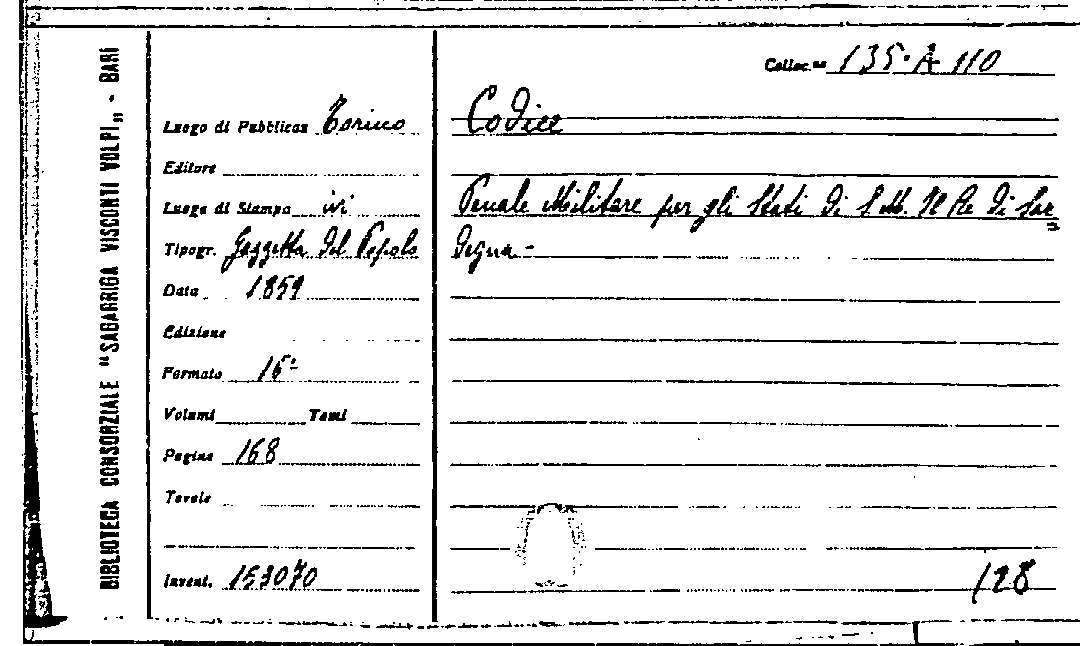 BIBLIOTECA CONSORZIALE "SAGARRIGA VISCONTI VOLPI,, - BARI
Colloc.ne 135-A-110
Luogo di Pubblicaz Torino
Editore
Luogo di Stampa ivi
Tipogr. Gazzetta del Popolo
Data 1859
Edizione
Formato 16°
Volumi Tomi
Pagine 168
Tavole
Invent. 153070
Codice
Penale Militare per gli Stati di S. M. Il Re di Sar=
degna -
128